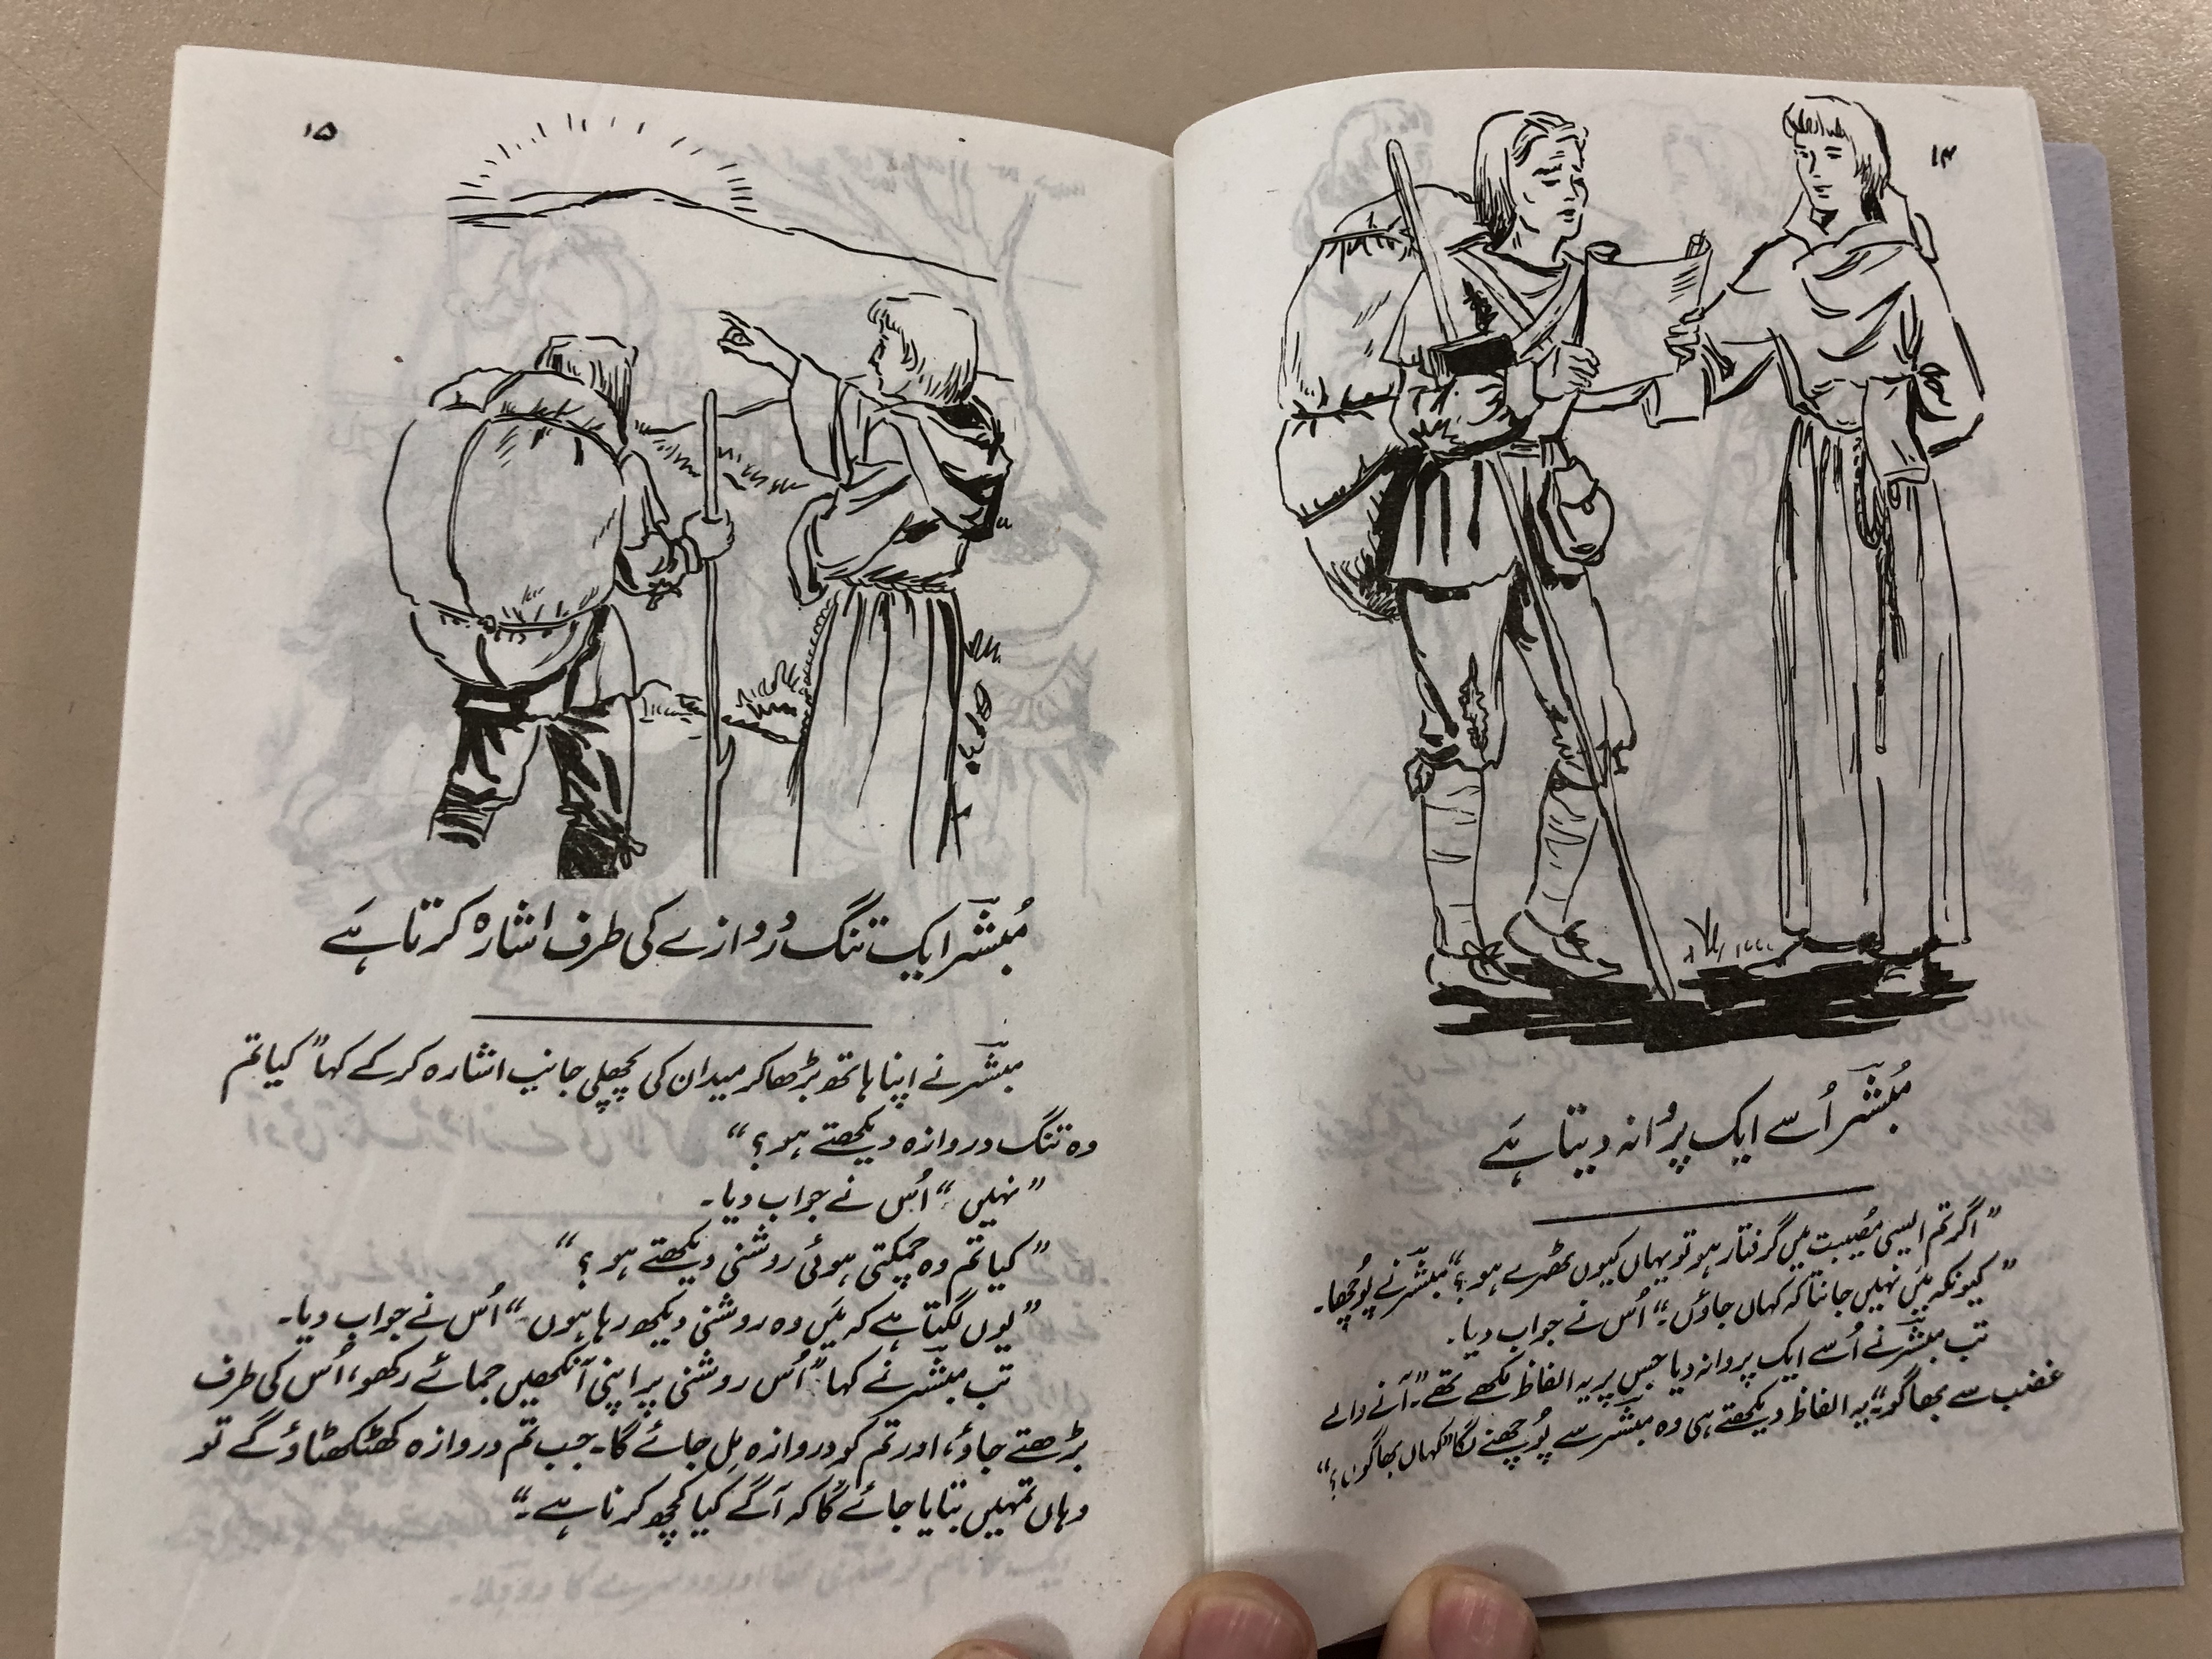 ۱۴
مُبشّر اُسے ایک پروانہ دیتا ہَے
”اگر تم ایسی مصُیبت میں گرفتار ہو تو یہاں کیوں ٹھہرے ہو؟“ مبشّر نے پوُچھا۔
”کیونکہ میَں نہیں جانتا کہ کہاں جاؤں۔“ اُس نے جواب دیا۔
تب مبشّر نے اُسے ایک پروانہ دیا جس پر یہ الفاظ لکھے تھے۔ ”آنے والے
غضب سے بھاگو۔“ یہ الفاظ دیکھتے ہی وہ مبشّر سے پوُچھنے لگا ”کہاں بھاگوں؟“
۱۵
مُبشّر ایک تنگ دروازے کی طرف اشارہ کرتا ہَے
مبشّر نے اپنا ہاتھ بڑھا کر میدان کی پچھلی جانب اشارہ کر کے کہا ”کیا تم
وہ تنگ دروازہ دیکھتے ہو؟“
”نہیں“ اُس نے جواب دیا۔
”کیا تم وہ چمکتی ہوئی روشنی دیکھتے ہو؟“
”یوں لگتا ہے کہ میَں وہ روشنی دیکھ رہا ہوں۔“ اُس نے جواب دیا۔
تب مبشّر نے کہا ”اُس روشنی پر اپنی آنکھیں جمائے رکھو، اُس کی طرف
بڑھتے جاؤ، اور تم کو دروازہ مِل جائے گا۔ جب تم دروازہ کھٹکھٹاؤ گے تو
وہاں تمہیں بتایا جائے گا کہ آگے کیا کچھ کرنا ہے۔“